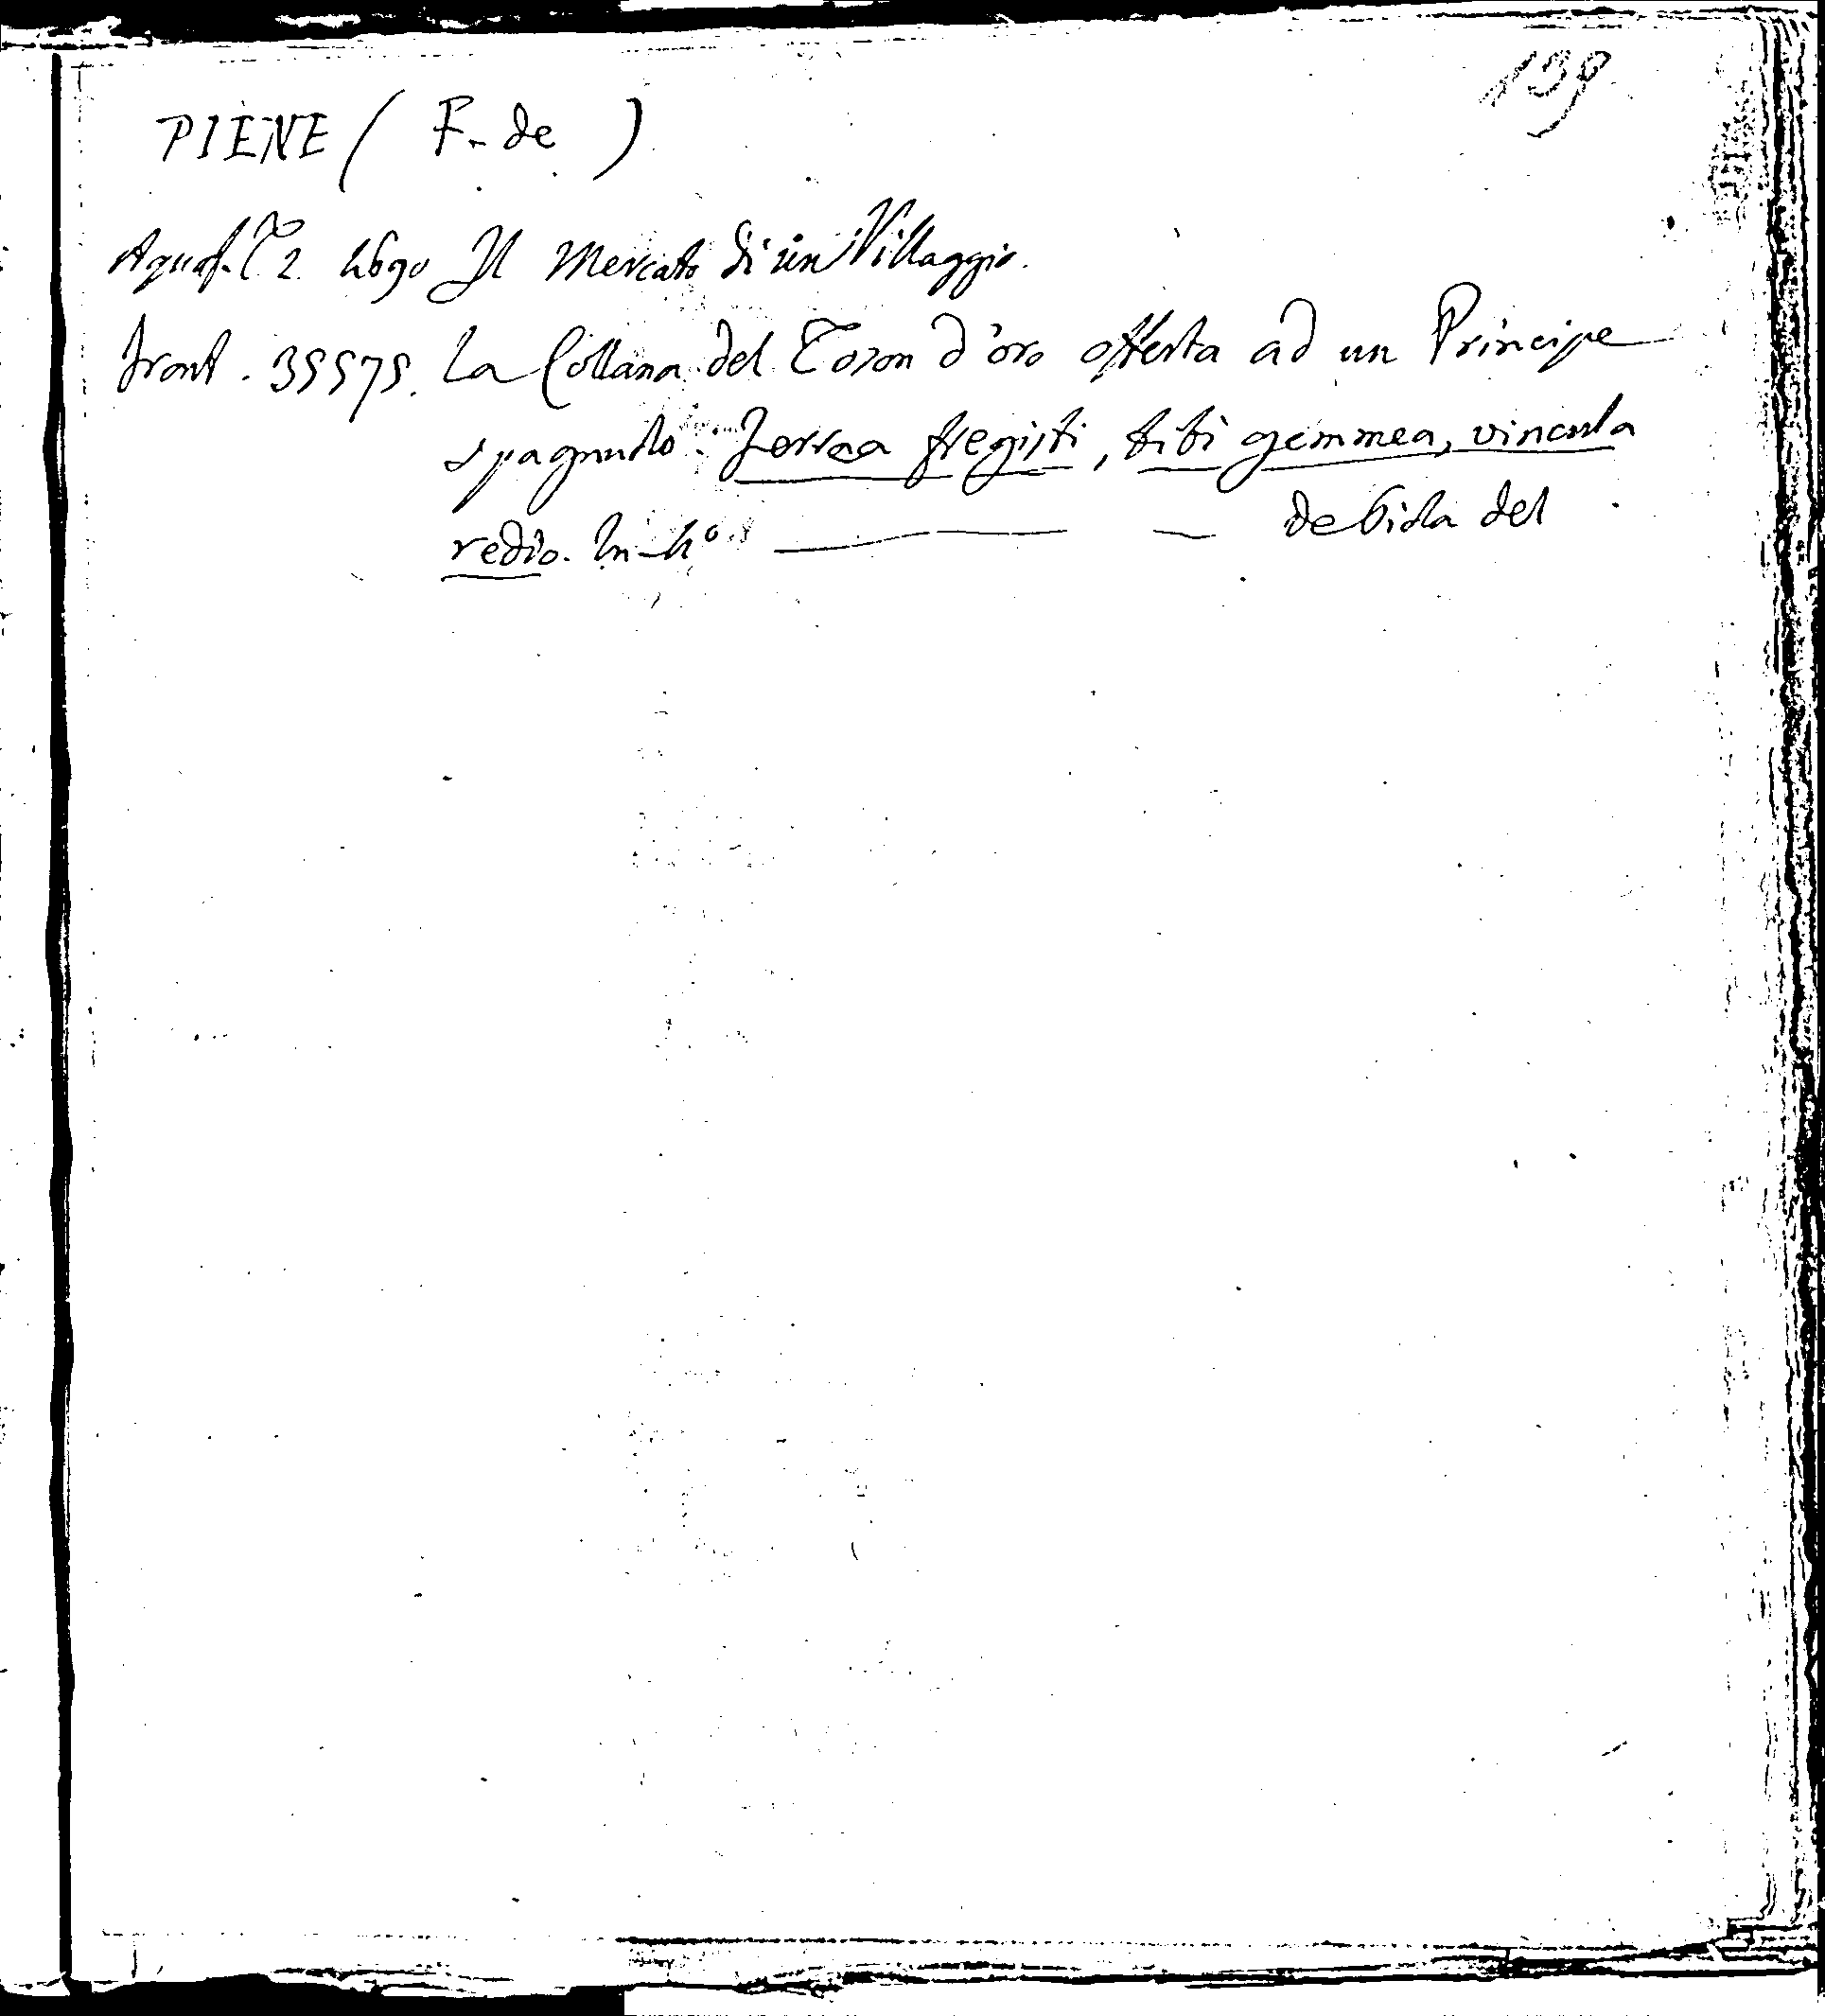 139
PIENE ( F. de )
Aquaf. T 2. 4690 Il Mercato di un Villaggio.
front. 35575. La Collana del Toson d'oro offerta ad un Principe
spagnuolo. Ferrea fregisti, tibi gemmea, vincula
redio. In 4° debida del